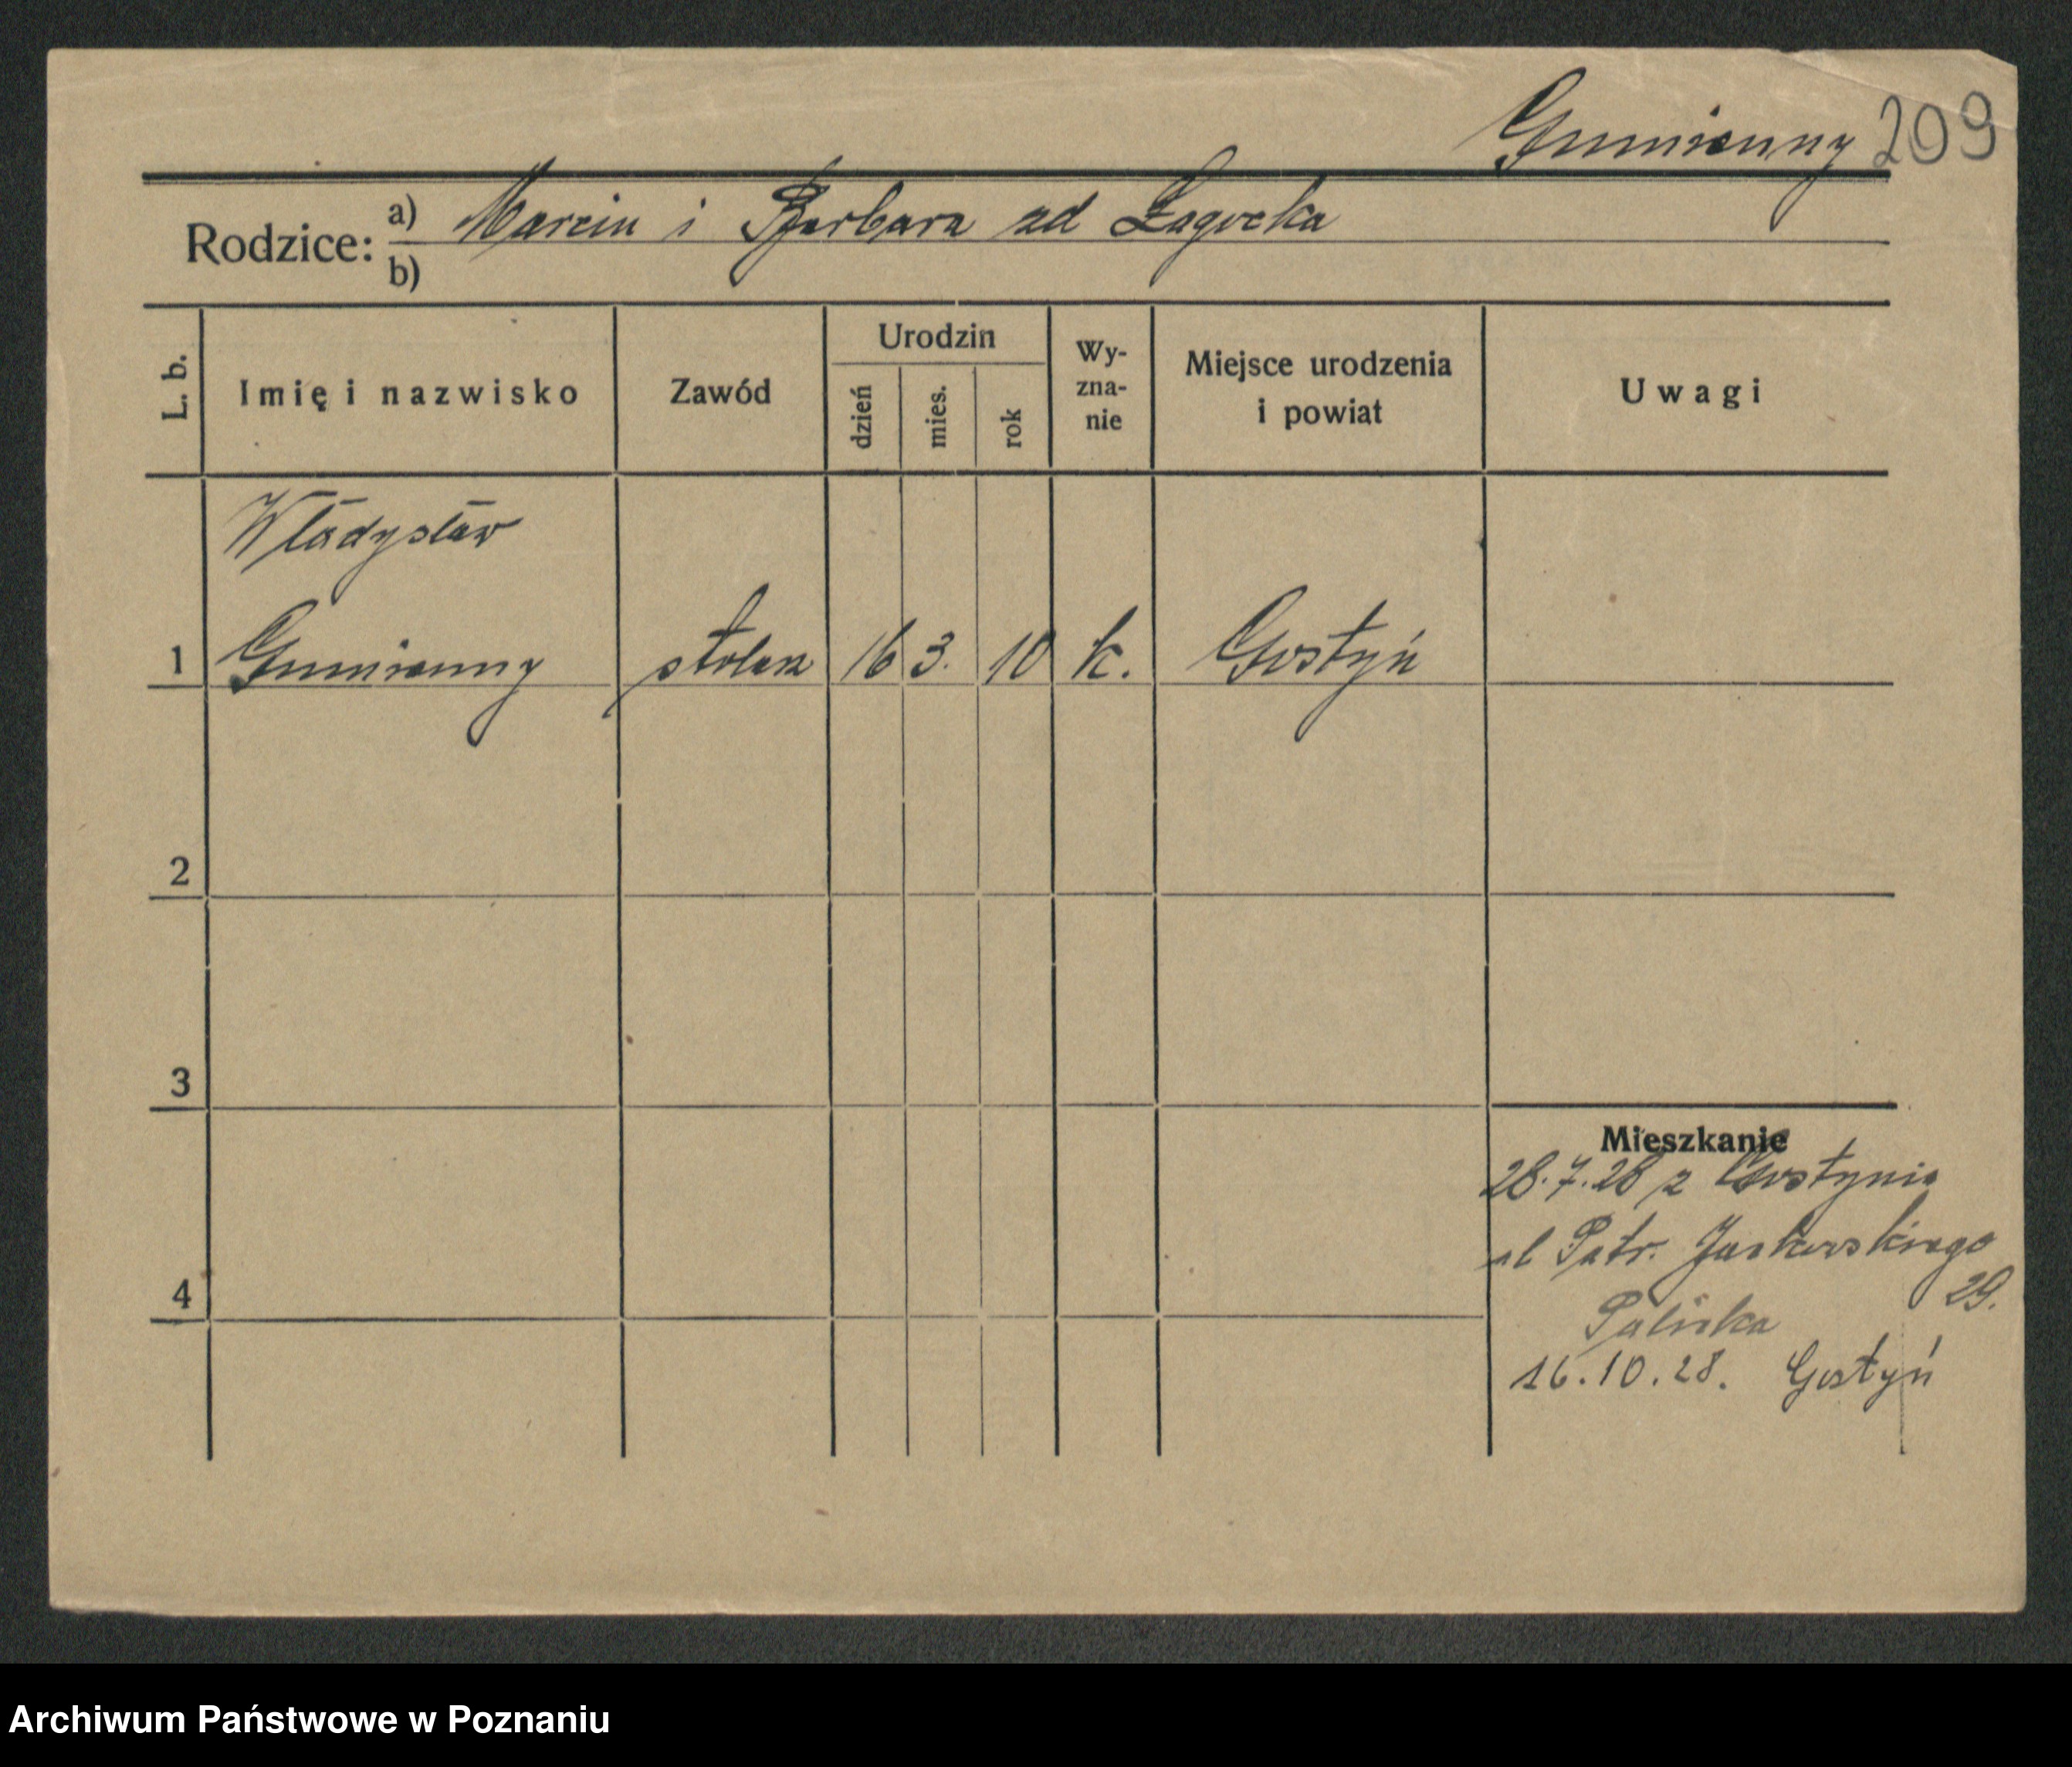 Gumienny 209
Rodzice: a) Marcin i Barbara zd
b)
L. b. Imię i nazwisko Zawód Urodzin dzień mies. rok Wy-zna-nie Miejsce urodzenia i powiat Uwagi
Władysław
1 Gumienny stolarz 16 3. 10 k. Gostyń
2
3
Mieszkanie
28.7.28 z Gostynia
ul Patr. Jackowskiego
29.
4
16.10.28. Gostyń
Archiwum Państwowe w Poznaniu